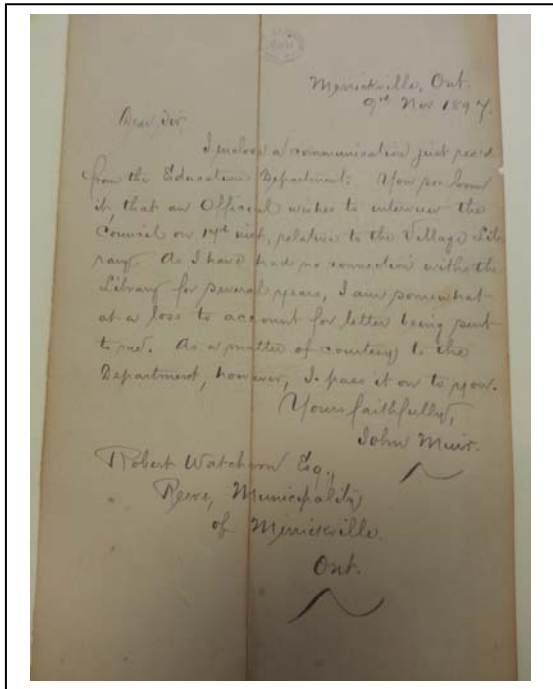 Merrickville, Ont.
9th Nov. 1897.
Dear Sir,
I enclose a communication just rec'd
from the Education Department. You see from
it, that an Official wishes to interview the
Council on inst, relative to the Village Lib
rary. As I have had no connection with the
Library for several years, I am somewhat
at a loss to account for letter being sent
to me. As a matter of courtesy to the
Department, however, I pass it on to you.
Yours faithfully,
John Muir.
Robert Watchorn Esq.,
Reeve, Municipality
of Merrickville.
Ont.